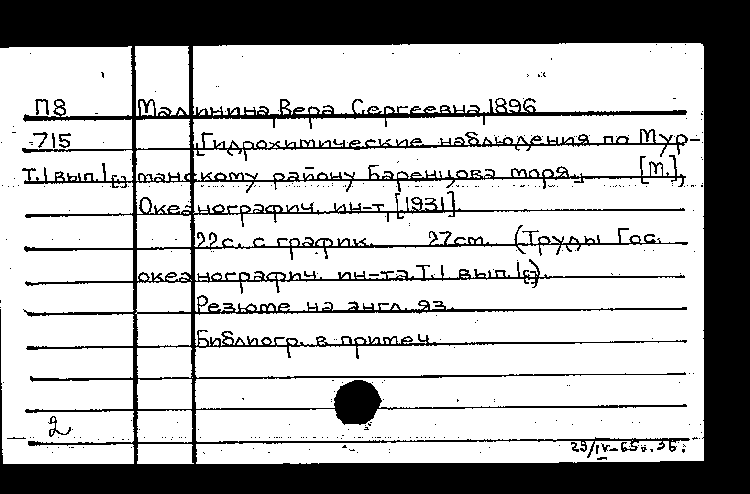 П8 Малинина, Вера Сергеевна, 1896
715 Гидрохимические наблюдения по Мур-
Т.1 вып.1[2] манскому району Баренцова моря. [М.],
Океанографич. ин-т, [1931].
22с. с график. 27см. (Труды Гос.
океанографич. ин-та. Т.1 вып.1[2]).
Резюме на англ. яз.
Библиогр. в примеч.
2